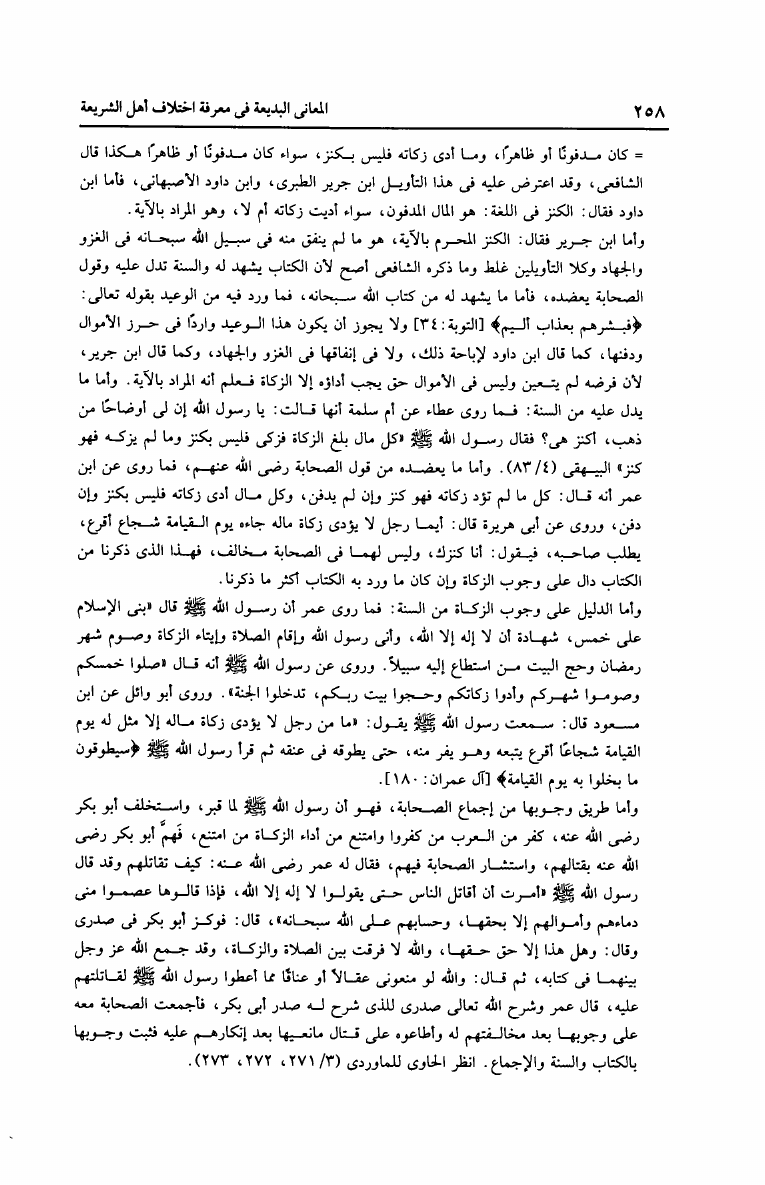 ٢٥٨
المعانى البديعة فى معرفة اختلاف أهل الشريعة
= كان مدفونًا أو ظاهرًا، وما أدى زكاته فليس بكنز، سواء كان مدفونًا أو ظاهرًا هكذا قال
الشافعى، وقد اعترض عليه فى هذا التأويل ابن جرير الطبرى، وابن داود الأصبهانى، فأما ابن
داود فقال: الكنز فى اللغة: هو المال المدفون، سواء أديت زكاته أم لا، وهو المراد بالآية.
وأما ابن جرير فقال: الكنز المحرم بالآية، هو ما لم ينفق منه فى سبيل الله سبحانه فى الغزو
والجهاد وكلا التأويلين غلط وما ذكره الشافعى أصح لأن الكتاب يشهد له والسنة تدل عليه وقول
الصحابة يعضده، فأما ما يشهد له من كتاب الله سبحانه، فما ورد فيه من الوعيد بقوله تعالى:
﴿فبشرهم بعذاب أليم﴾ [التوبة:٣٤] ولا يجوز أن يكون هذا الوعيد واردًا فى حرز الأموال
ودفنها، كما قال ابن داود لإباحة ذلك، ولا فى إنفاقها فى الغزو والجهاد، وكما قال ابن جرير،
لأن فرضه لم يتعين وليس فى الأموال حق يجب أداؤه إلا الزكاة فعلم أنه المراد بالآية. وأما ما
يدل عليه من السنة: فما روى عطاء عن أم سلمة أنها قالت: يا رسول الله إن لى أوضاحًا من
ذهب، أكنز هى؟ فقال رسول الله ﷺ «كل مال بلغ الزكاة فزكى فليس بكنز وما لم يزكه فهو
كنز» البيهقى (٨٣/٤). وأما ما يعضده من قول الصحابة رضى الله عنهم، فما روى عن ابن
عمر أنه قال: كل ما لم تؤد زكاته فهو كنز وإن لم يدفن، وكل مال أدى زكاته فليس بكنز وإن
دفن، وروى عن أبى هريرة قال: أيما رجل لا يؤدى زكاة ماله جاءه يوم القيامة شجاع أقرع،
يطلب صاحبه، فيقول: أنا كنزك، وليس لهما فى الصحابة مخالف، فهذا الذى ذكرنا من
الكتاب دال على وجوب الزكاة وإن كان ما ورد به الكتاب أكثر ما ذكرنا.
وأما الدليل على وجوب الزكاة من السنة: فما روى عمر أن رسول الله ﷺ قال «بنى الإسلام
على خمس، شهادة أن لا إله إلا الله، وأنى رسول الله وإقام الصلاة وإيتاء الزكاة وصوم شهر
رمضان وحج البيت من استطاع إليه سبيلاً. وروى عن رسول الله ﷺ أنه قال «صلوا خمسكم
وصوموا شهركم وأدوا زكاتكم وحجوا بيت ربكم، تدخلوا الجنة». وروى أبو وائل عن ابن
مسعود قال: سمعت رسول الله ﷺ يقول: «ما من رجل لا يؤدى زكاة ماله إلا مثل له يوم
القيامة شجاعًا أقرع يتبعه وهو يفر منه، حتى يطوقه فى عنقه ثم قرأ رسول الله ﷺ ﴿سيطوقون
ما بخلوا به يوم القيامة﴾ [آل عمران: ١٨٠].
وأما طريق وجوبها من إجماع الصحابة، فهو أن رسول الله ﷺ لما قبر، واستخلف أبو بكر
رضى الله عنه، كفر من العرب من كفروا وامتنع من أداء الزكاة من امتنع، فَهمَّ أبو بكر رضى
الله عنه بقتالهم، واستشار الصحابة فيهم، فقال له عمر رضى الله عنه: كيف تقاتلهم وقد قال
رسول الله ﷺ «أمرت أن أقاتل الناس حتى يقولوا لا إله إلا الله، فإذا قالوها عصموا منى
دماءهم وأموالهم إلا بحقها، وحسابهم على الله سبحانه»، قال: فوكز أبو بكر فى صدرى
وقال: وهل هذا إلا حق حقها، والله لا فرقت بين الصلاة والزكاة، وقد جمع الله عز وجل
بينهما فى كتابه، ثم قال: والله لو منعونى عقالاً أو عناقًا مما أعطوا رسول الله ﷺ لقاتلتهم
عليه، قال عمر وشرح الله تعالى صدرى للذى شرح له صدر أبى بكر، فأجمعت الصحابة معه
على وجوبها بعد مخالفتهم له وأطاعوه على قتال مانعيها بعد إنكارهم عليه فثبت وجوبها
بالكتاب والسنة والإجماع. انظر الحاوى للماوردى (٢٧١/٣، ٢٧٢، ٢٧٣).